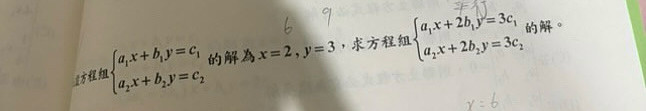 6 9 平行
方程組{a₁x+b₁y=c₁ a₂x+b₂y=c₂ 的解為x=2,y=3,求方程組{a₁x+2b₁y=3c₁ a₂x+2b₂y=3c₂ 的解。
y=6